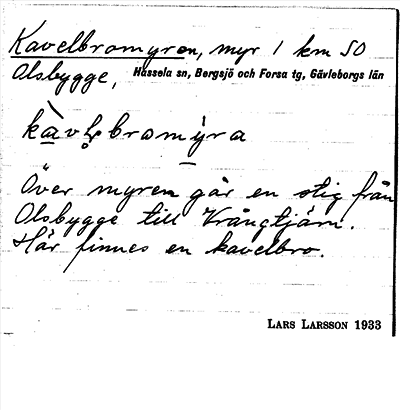 Kavelbromyren, myr 1 km SO
Olsbygge, Hassela sn, Bergsjö och Forsa tg, Gävleborgs län
Över myren går en stig från
Olsbygge till Vrångtjärn.
Här finnes en kavelbro.
LARS LARSSON 1933